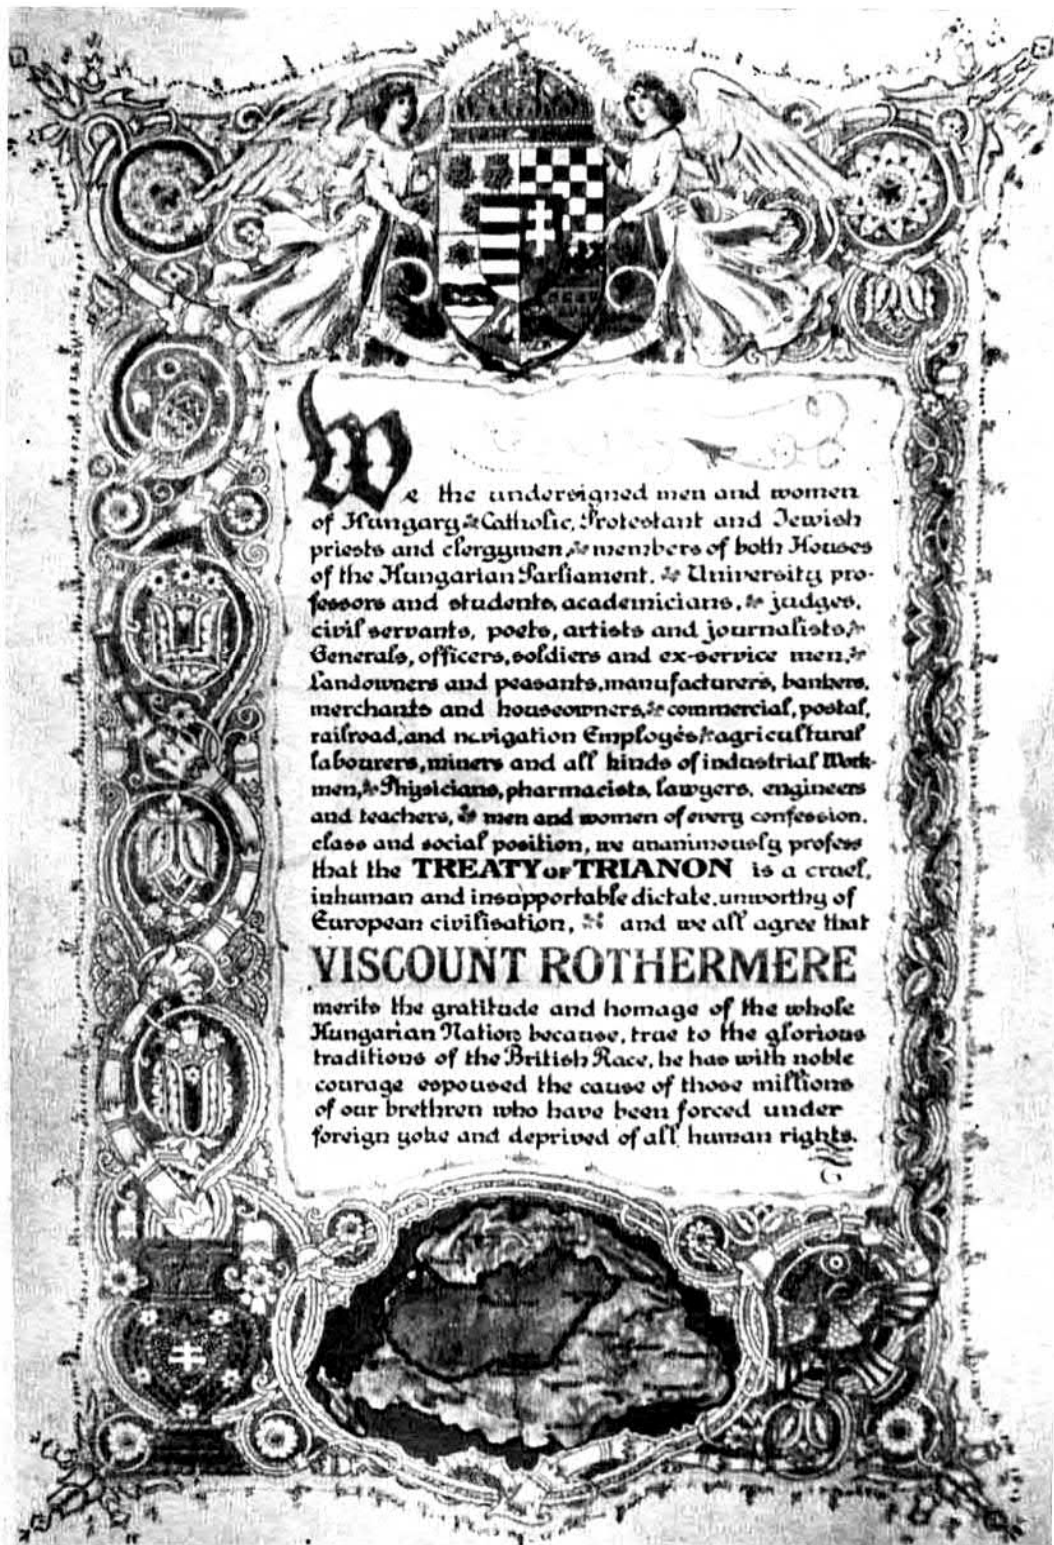 We the undersigned men and women
of Hungary Catholic, Protestant and Jewish
priests and clergymen, members of both Houses
of the Hungarian Parliament. University pro-
fessors and students, academicians, judges,
civil servants, poets, artists and journalists,
Generals, officers, soldiers and ex-service men,
Landowners and peasants, manufacturers, bankers,
merchants and houseowners, commercial, postal,
railroad, and navigation Employés, agricultural
labourers, miners and all kinds of industrial Work-
men, Physicians, pharmacists, lawyers, engineers
and teachers, men and women of every confession,
class and social position, we unanimously profess
that the TREATY OF TRIANON is a cruel,
inhuman and insupportable dictate, unworthy of
European civilisation, and we all agree that
VISCOUNT ROTHERMERE
merits the gratitude and homage of the whole
Hungarian Nation because, true to the glorious
traditions of the British Race, he has with noble
courage espoused the cause of those millions
of our brethren who have been forced under
foreign yoke and deprived of all human rights.